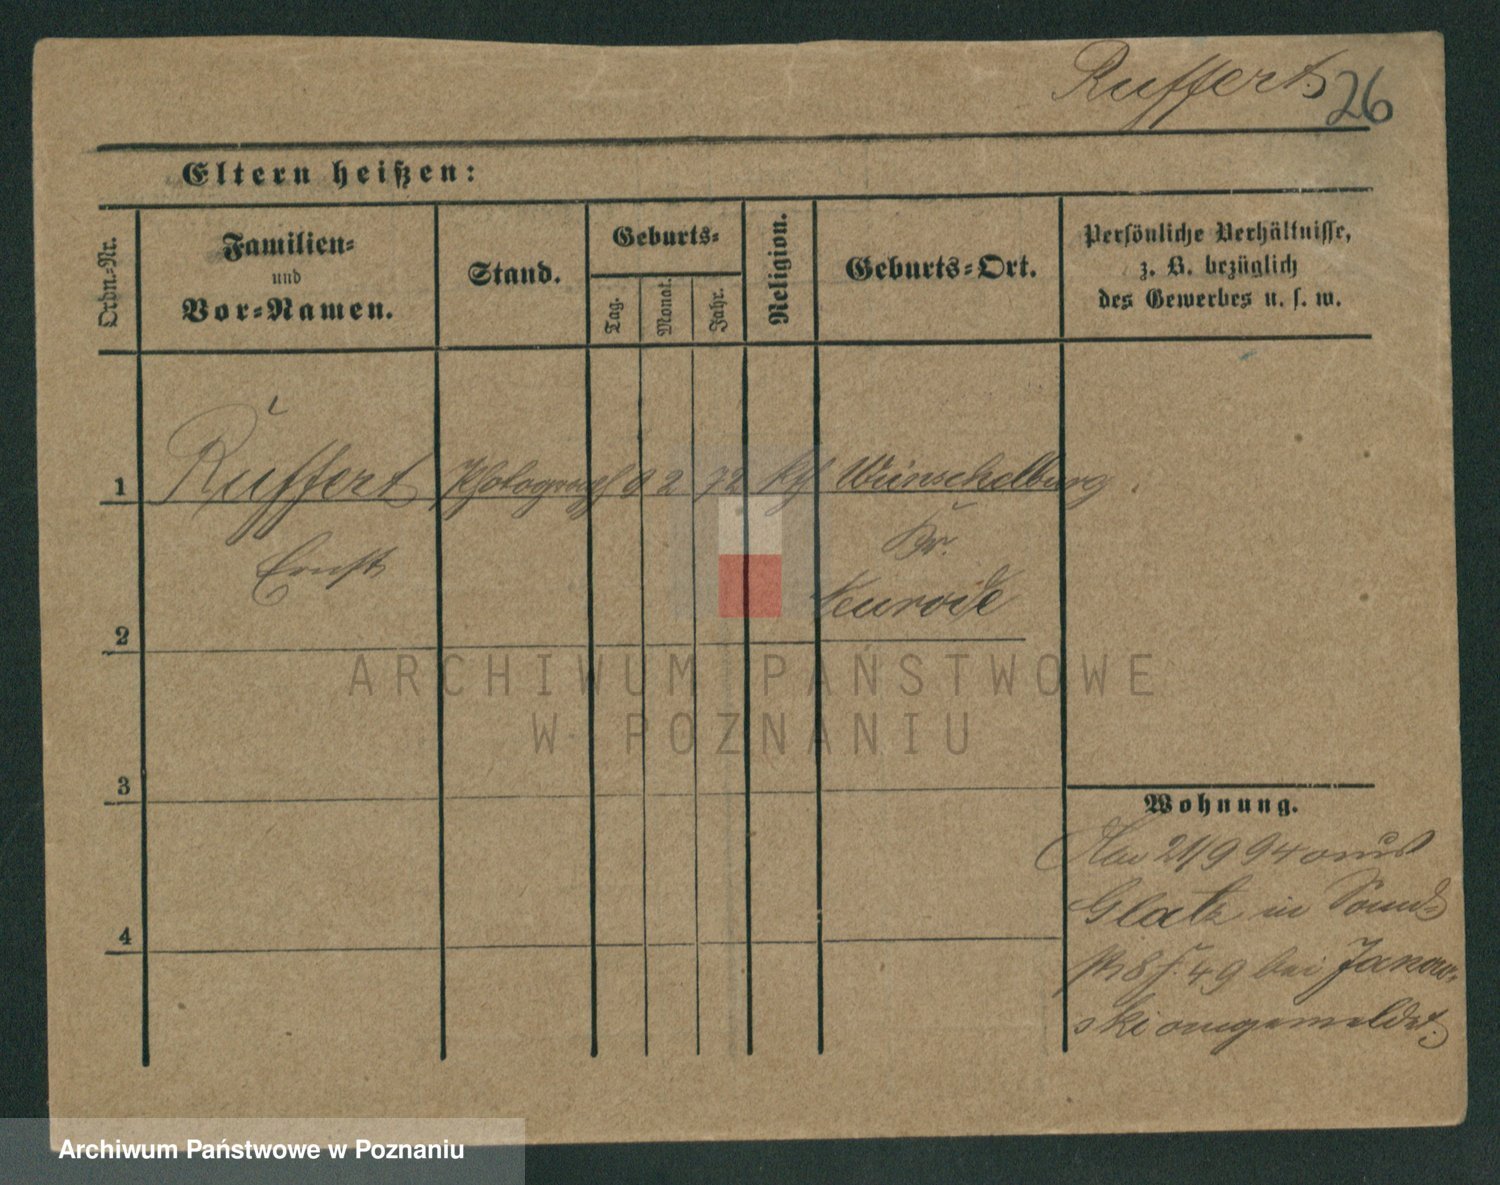 Ruffert 26
Eltern heißen:
Ordn.-Nr.
Familien-
und
Vor-Namen.
Stand.
Geburts-
Tag.
Monat.
Jahr.
Religion.
Geburts-Ort.
Persönliche Verhältnisse,
z. B. bezüglich
des Gewerbes u. s. w.
1 Ruffert Photograph 9 2 72 kh Wünschelburg
Kr.
Ernst
Neurode
2
ARCHIWUM PAŃSTWOWE
W POZNANIU
3
Wohnung.
21/9 94 aus
Glatz in
49 bei Janow-
4
ski angemeldet.
Archiwum Państwowe w Poznaniu